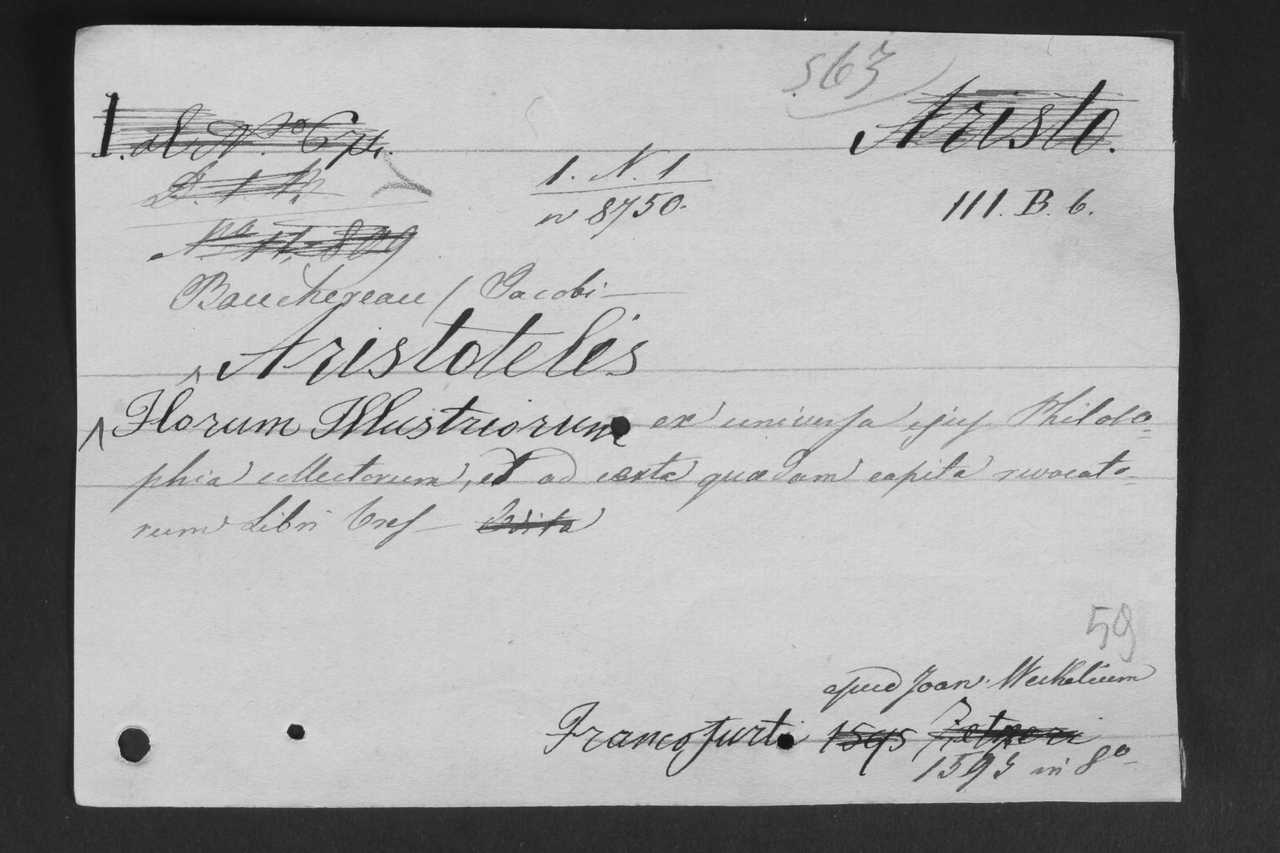 563
Aristo.
III. B. 6.
1. N. 1
n 8750.
No 11,809
Bauchereau / Jacobi
Aristotelis
Florum Illustriorum ex universa ejus Philoso=
phia collectorum, et ad certa quædam capita revocato=
rum Libri tres Edita
59
apud Joan. Wechelium
Francofurti 1595
1593 in 8o